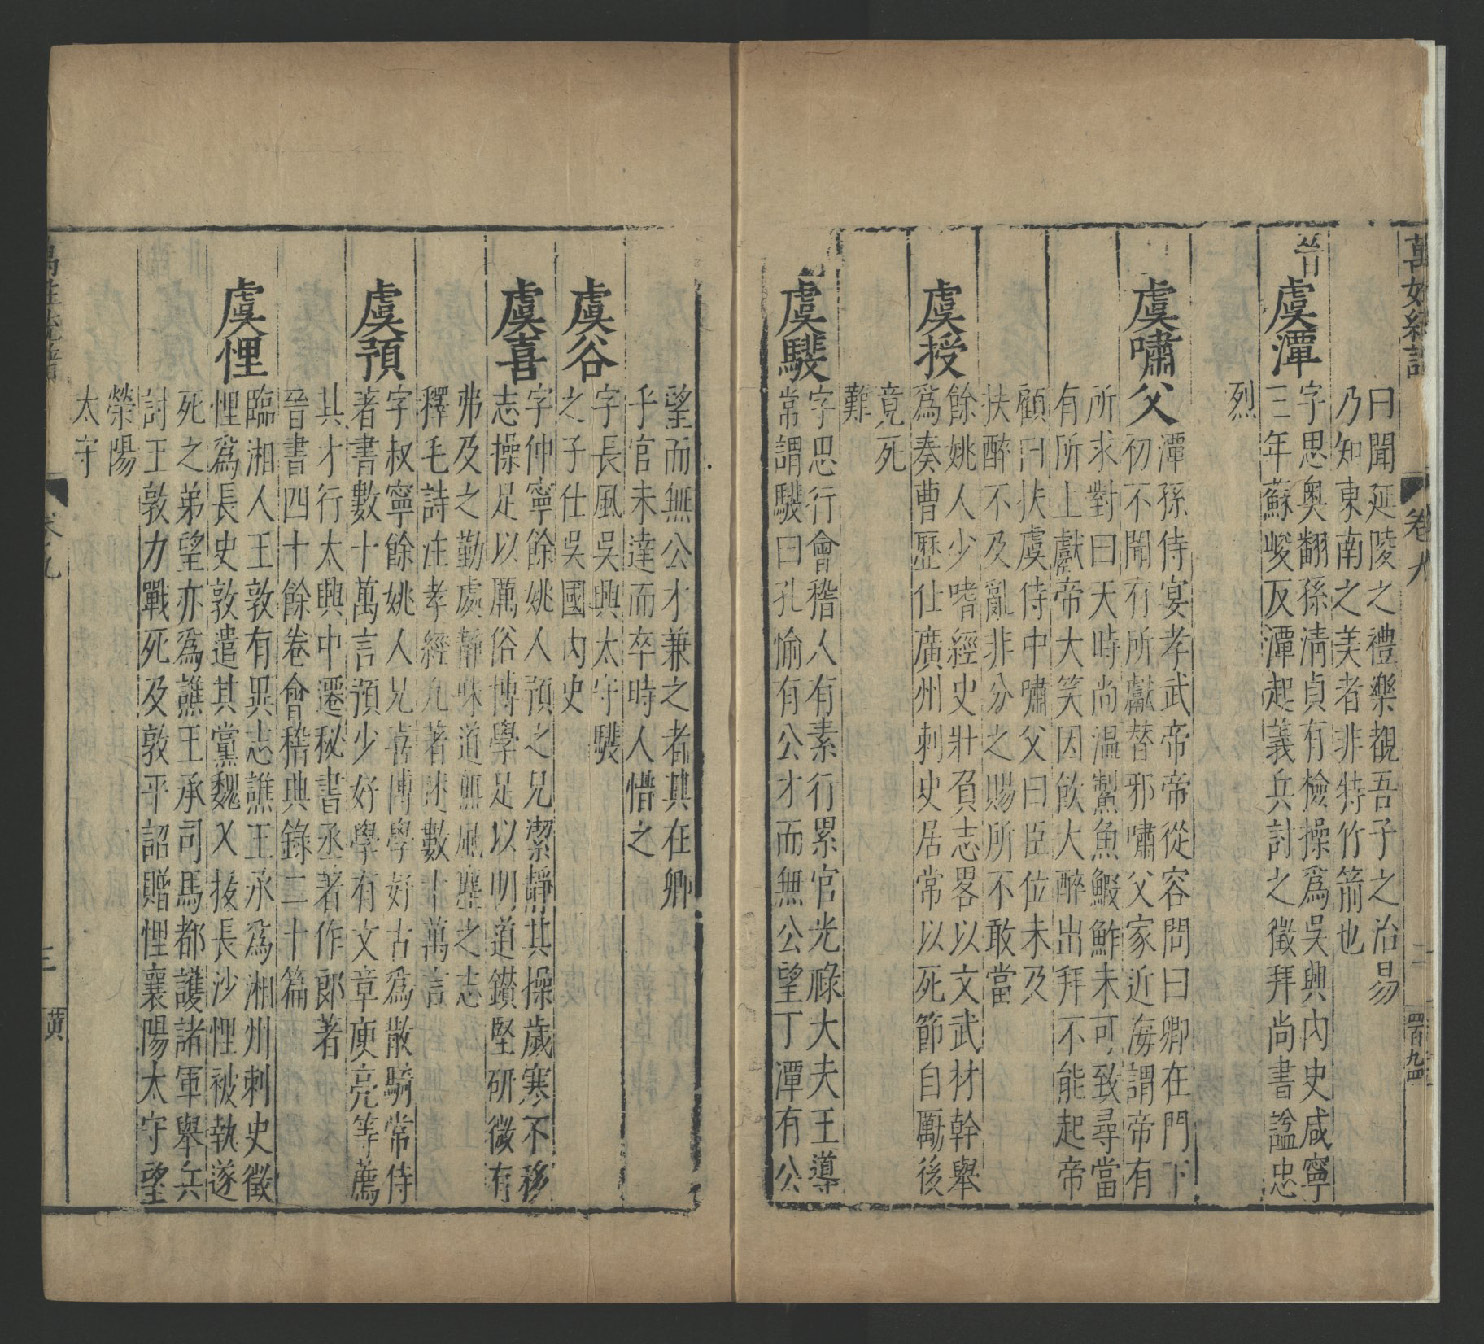 萬姓統譜
卷九
二
四百九四
曰聞延陵之禮樂觀吾子之治易
乃知東南之美者非特竹箭也
晉
虞潭
字思奧翻孫清貞有檢操爲吳興內史咸寧
三年蘇峻反潭起義兵討之徵拜尚書諡忠
烈
虞嘯父
潭孫侍宴孝武帝帝從容問曰卿在門下
初不聞有所獻替邪嘯父家近海謂帝有
所求對曰天時尚溫鮆魚鰕鮓未可致尋當
有所上獻帝大笑因飲大醉出拜不能起帝
顧曰扶虞侍中嘯父曰臣位未及
扶醉不及亂非分之賜所不敢當
虞授
餘姚人少嗜經史壯負志畧以文武材幹舉
爲奏曹歷仕廣州刺史居常以死節自勵後
竟死
難
虞騣
字思行會稽人有素行累官光祿大夫王導
常謂騣曰孔愉有公才而無公望丁潭有公
望而無公才兼之者其在卿
乎官未達而卒時人惜之
虞谷
字長風吳興太守騣
之子仕吳國內史
虞喜
字仲寧餘姚人預之兄潔靜其操歲寒不移
志操足以厲俗博學足以明道鑚堅研微有
弗及之勤處靜味道無風塵之志
釋毛詩注孝經凡著述數十萬言
虞預
字叔寧餘姚人兄喜博學好古爲散騎常侍
著書數十萬言預少好學有文章庾亮等薦
其才行太興中遷秘書丞著作郎著
晉書四十餘卷會稽典錄二十篇
虞悝
臨湘人王敦有異志譙王承爲湘州刺史徵
悝爲長史敦遣其黨魏乂拔長沙悝被執遂
死之弟望亦爲譙王承司馬都護諸軍舉兵
討王敦力戰死及敦平詔贈悝襄陽太守望
滎陽
太守
萬姓統譜
卷九
三